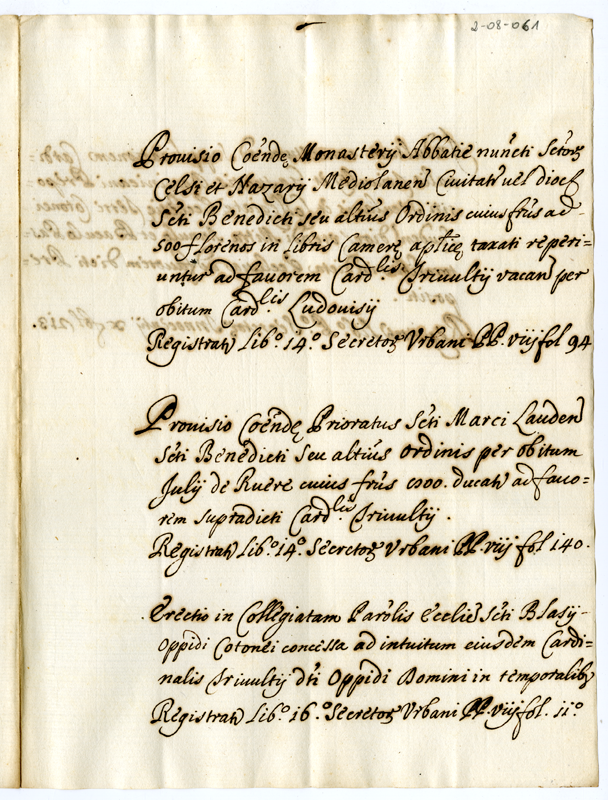 2-08-061
Prouisio Coẽndę Monasterij Abbatie nuñcti Sctoꝝ
Celsi et Nazarij Mediolanen̄ Ciuitat̄ uel dioc̄
Scti Benedicti seu altiũs Ordinis cuius frũs ad
500 florenos in libris Camerę apl̃icę taxati reperi-
untur ad fauorem Card.lis Triuultij vacan̄ per
obitum Card.lis Ludouisij
Registrat̄ Lib.o 14.o Secretoꝝ Vrbani PP. viij fol 94
Prouisio Coẽndę Prioratus Scti Marci Lauden̄
Scti Benedicti seu altiũs Ordinis per obitum
Julij de Ruere cuius frũs 1000. ducat̄ ad fauo-
rem supradicti Card.lis Triuultij.
Registrat̄ Lib.o 14.o Secretoꝝ Vrbani PP. viij fol 140.
Erectio in Collegiatam Parõlis Ecclie Scti Blasij
Oppidi Cotonei concessa ad intuitum eiusdem Cardi-
nalis Triuultij dti Oppidi Domini in temporalibꝫ
Registrat̄ Lib.o 16.o Secretoꝝ Vrbani PP. viij fol. 11.o